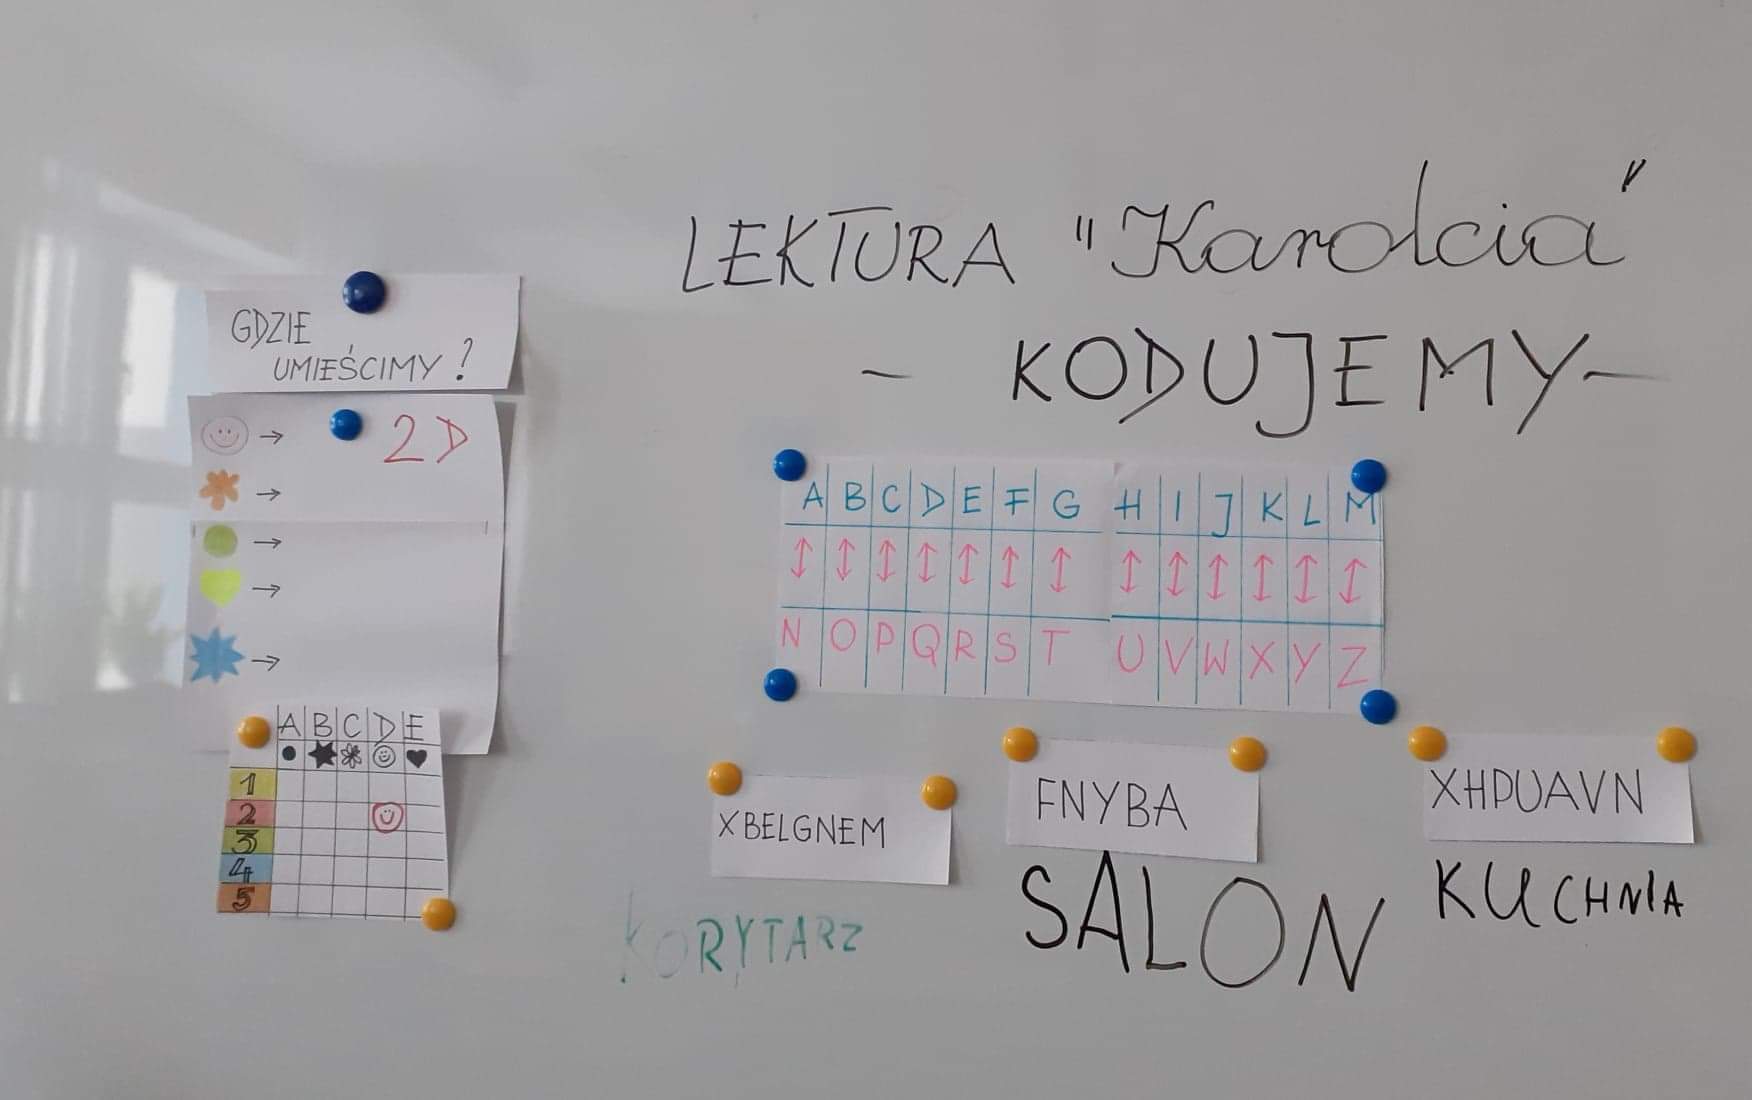 LEKTURA "Karolcia"
- KODUJEMY -
GDZIE
UMIEŚCIMY?
→ 2D
→
→
→
→
A B C D E
1
2
3
4
5
A B C D E F G H I J K L M
↕ ↕ ↕ ↕ ↕ ↕ ↕ ↕ ↕ ↕ ↕ ↕ ↕
N O P Q R S T U V W X Y Z
XBELGNEM
KORYTARZ
FNYBA
SALON
XHPUAVN
KUCHNIA